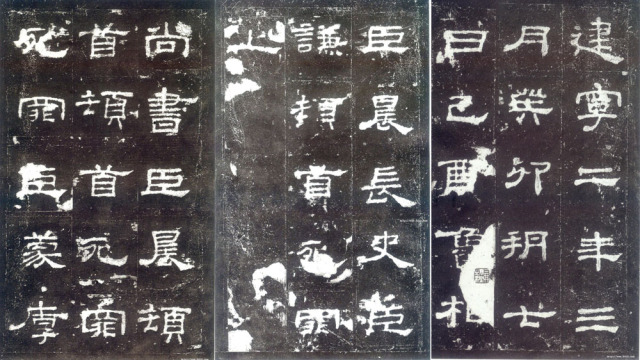 建寧二年三
月癸卯朔七
日己酉魯相
臣晨長史臣
謙頓首死罪
上
尚書臣晨頓
首頓首死罪
死罪臣蒙厚